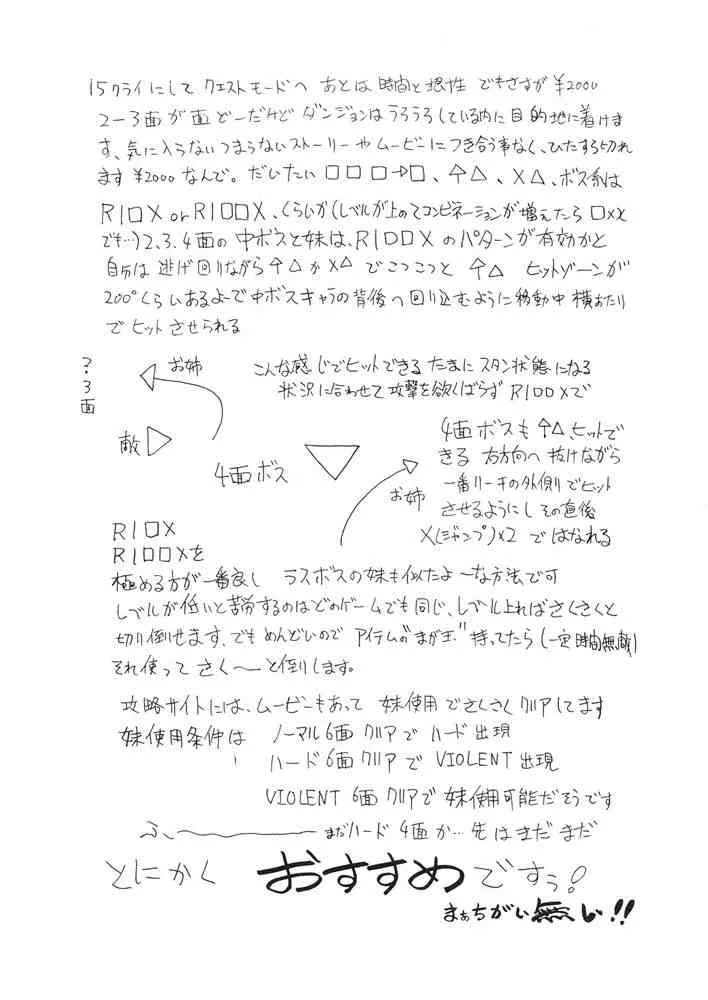 15クライにして クエストモードへ あとは 時間と根性 でもさすが ¥2000
2-3面が面どーだけど ダンジョンはうろうろしている内に目的地に着けま
す、気に入らない つまらないストーリーやムービーにつき合う事なく、ひたすら切れ
ます ¥2000 なんで。だいたい □□□→□、↑△、×△、ボス系は
R1□× or R1□□×、くらいか(レベルが上がってコンビネーションが増えたら □××
でも…)2、3、4面の中ボスと妹は、R1□□×のパターンが有効かと
自分は逃げ回りながら ↑△か×△でこつこつと ↑△ ヒットゾーンが
200°くらいあるよーで中ボスキャラの背後へ回り込むように移動中 横あたり
でヒットさせられる
?3面
お姉
敵
こんな感じでヒットできる たまにスタン状態になる
状況に合わせて攻撃を欲ばらず R1□□×で
4面ボス
お姉
4面ボスも ↑△、ヒットで
きる 右方向へ抜けながら
一番リーチの外側でヒット
させるようにし その直後
×(ジャンプ)×2 ではなれる
R1□×
R1□□×を
極める方が一番良し ラスボスの妹も似たよーな方法で可
レベルが低いと苦労するのはどのゲームでも同じ、レベル上ればさくさくと
切り倒せます、でもめんどいので アイテムの"まが玉"持ってたら(一定時間無敵)
それ使って さく〜っと倒します。
攻略サイトには、ムービーもあって 妹使用でさくさくクリアしてます
妹使用条件は ノーマル6面クリアで ハード出現
ハード6面クリアで VIOLENT出現
VIOLENT 6面クリアで妹使用可能だそうです
ふ、〜 まだハード 4面か…先はまだまだ
とにかく おすすめですぅ!
まぁちがい無し!!